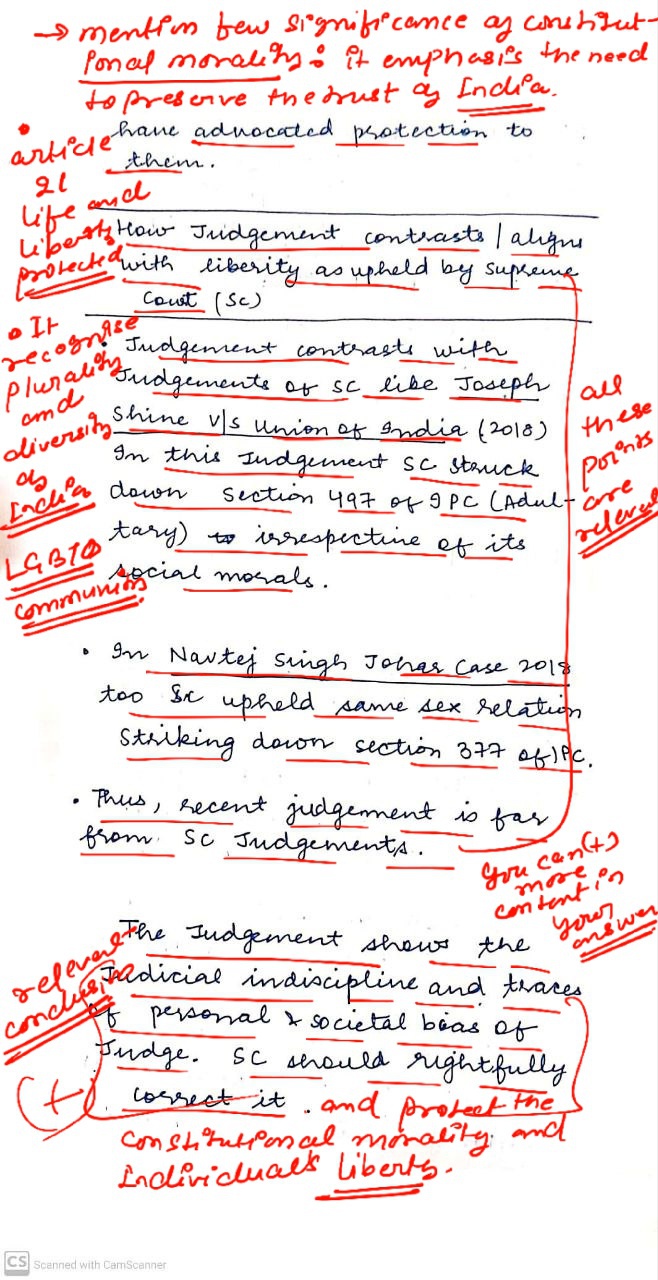 → mention few significance of constitut-
ional morality: it emphasis the need
to preserve the trust of India.
have advocated protection to
them.
• article
21
life and
liberty
protected
How Judgement contrasts / aligns
with liberity as upheld by supreme
Court (SC)
• It
recognise
plurality
and
diversity
of
India
LGBTQ
communion
• Judgement contrasts with
Judgements of SC like Joseph
Shine V/s Union of India (2018)
In this Judgement SC struck
down section 497 of IPC (Adul-
tary) to irrespective of its
social morals.
all
these
points
are
relevant
• In Navtej Singh Johar Case 2018
too SC upheld same sex relation
striking down section 377 of IPC.
• Thus, recent judgement is far
from SC Judgements.
you can (+)
more
content in
your
answer
relevant
conclusion
(+)
The Judgement shows the
Judicial indiscipline and traces
of personal & societal bias of
Judge. SC should rightfully
correct it. and protect the
constitutional morality and
individual's liberty.
CS Scanned with CamScanner